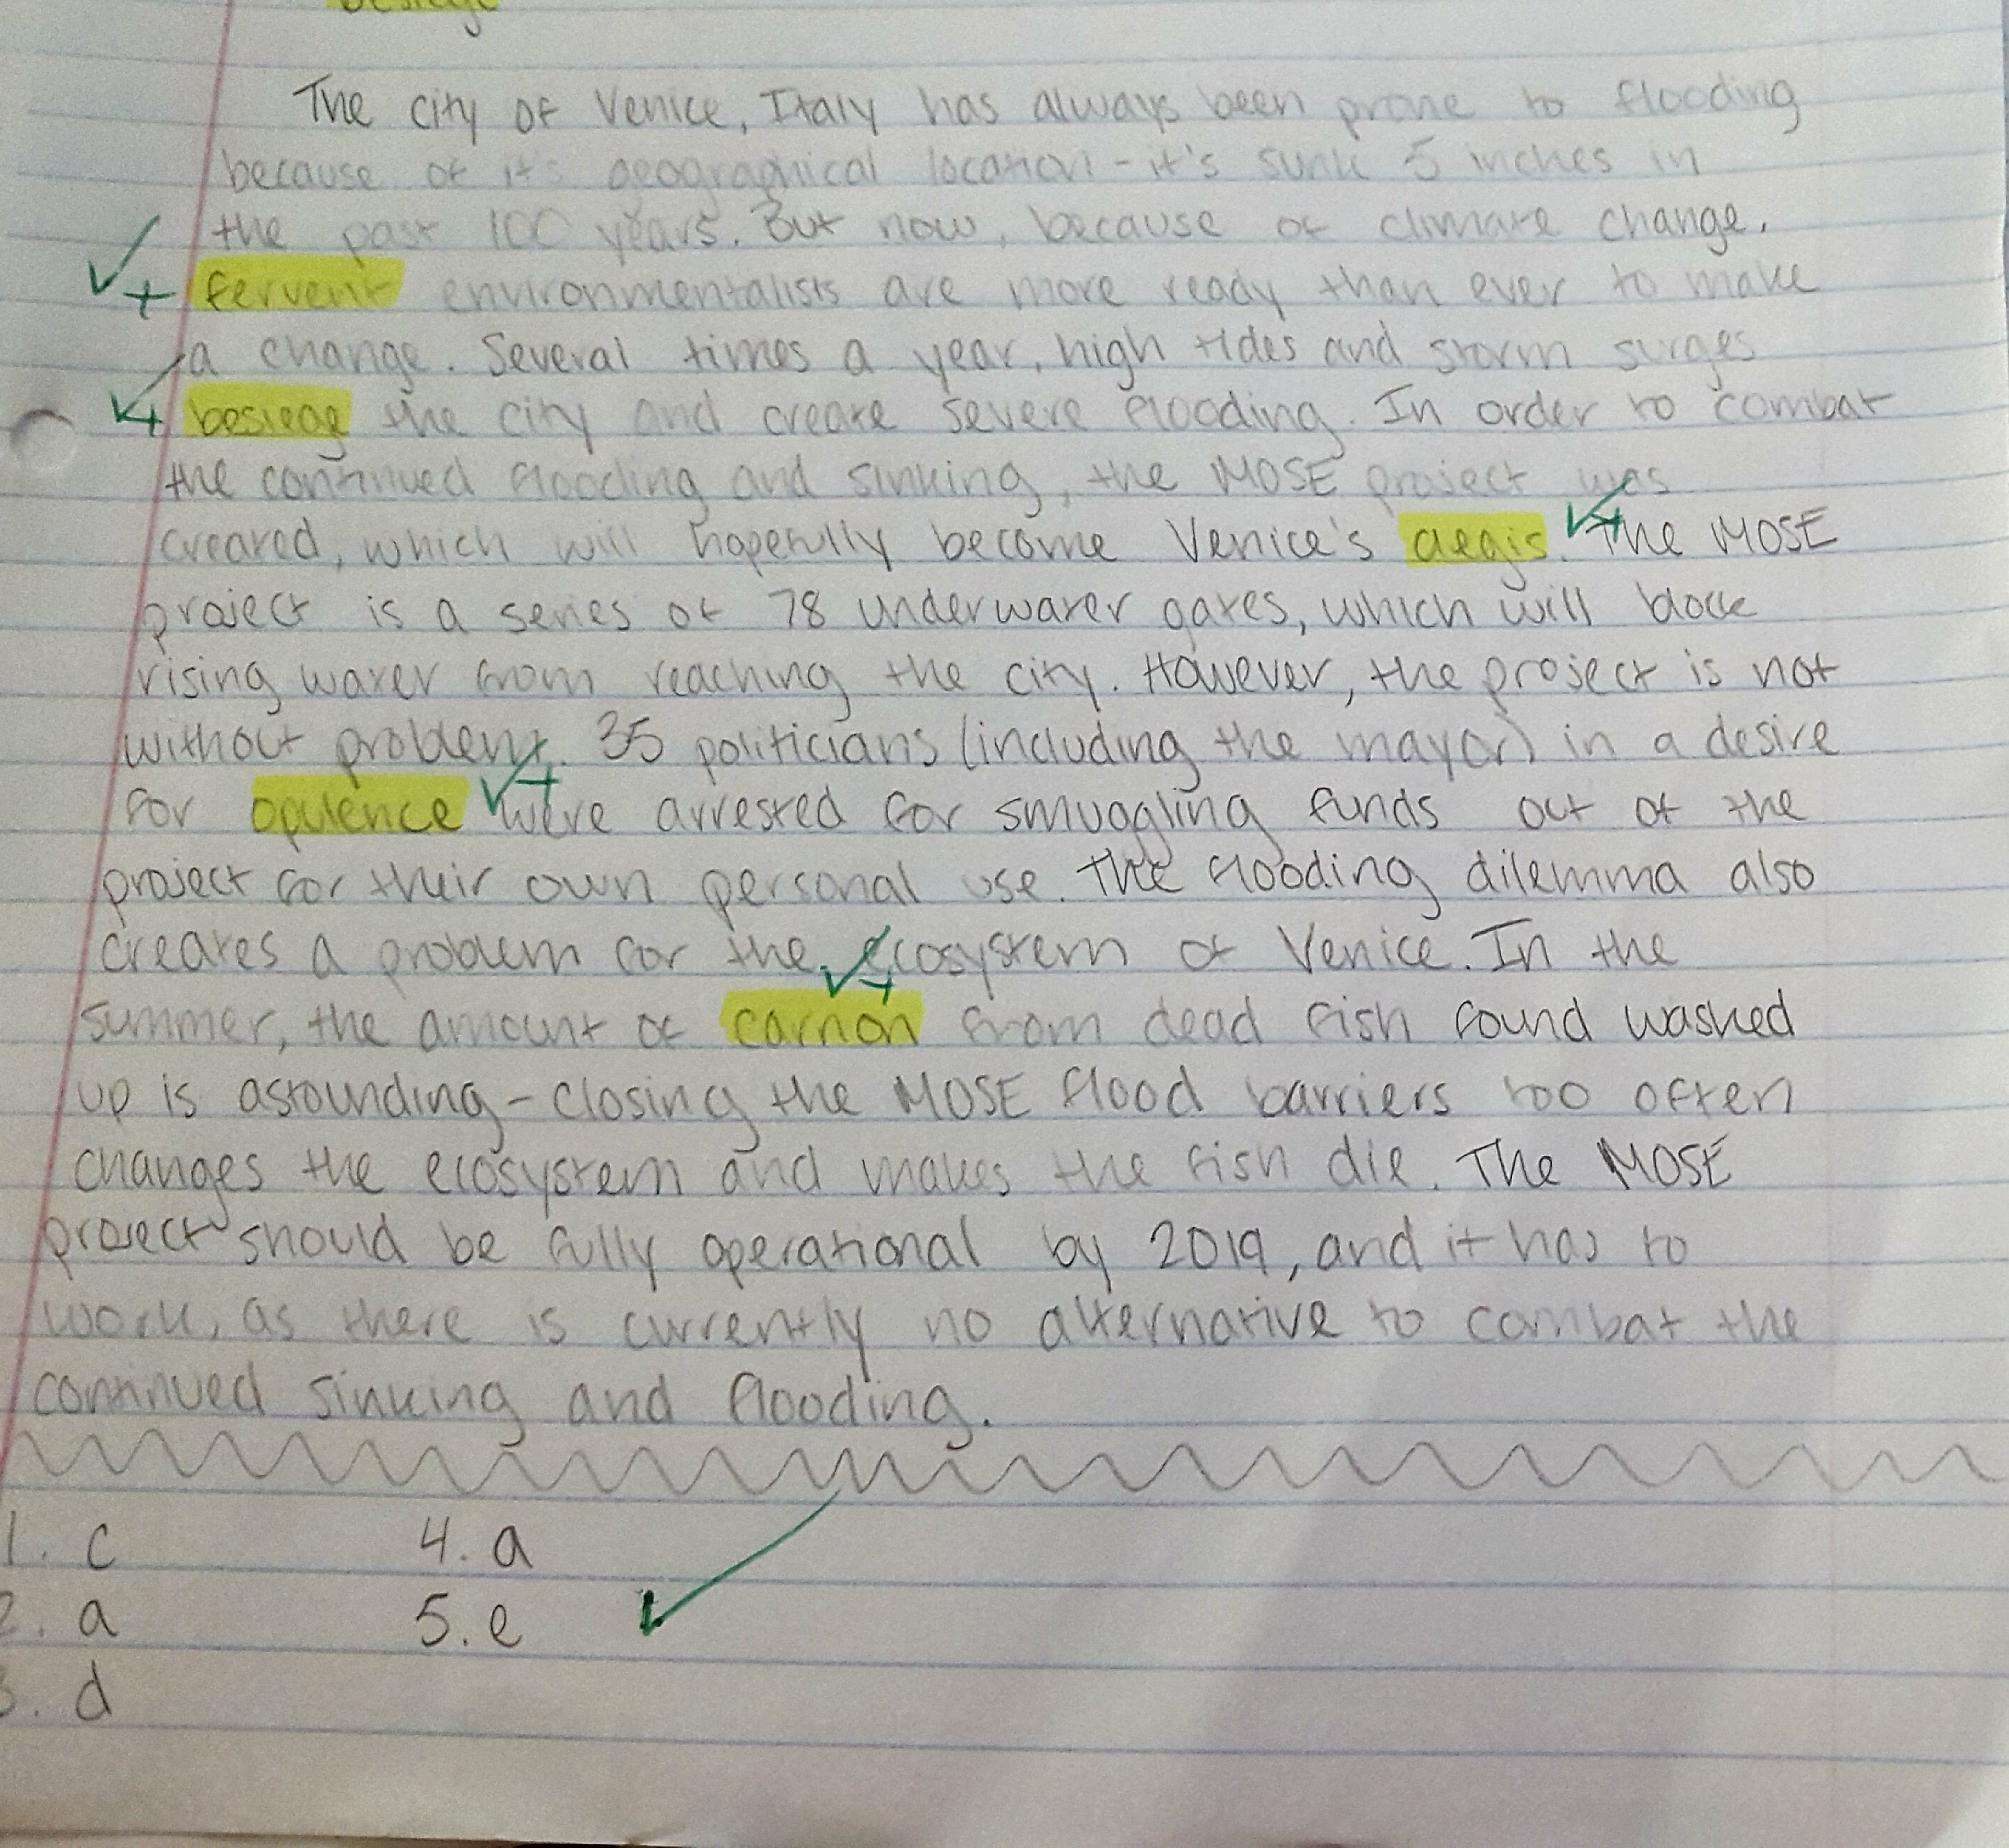 besiege
The city of Venice, Italy has always been prone to flooding
because of it's geographical location - it's sunk 5 inches in
the past 100 years. But now, because of climate change,
fervent environmentalists are more ready than ever to make
a change. Several times a year, high tides and storm surges
besiege the city and create severe flooding. In order to combat
the continued flooding and sinking, the MOSE project was
created, which will hopefully become Venice's aegis. The MOSE
project is a series of 78 underwater gates, which will block
rising water from reaching the city. However, the project is not
without problem. 35 politicians (including the mayor) in a desire
for opulence were arrested for smuggling funds out of the
project for their own personal use. The flooding dilemma also
creates a problem for the ecosystem of Venice. In the
summer, the amount of carrion from dead fish found washed
up is astounding - closing the MOSE flood barriers too often
changes the ecosystem and makes the fish die. The MOSE
project should be fully operational by 2019, and it has to
work, as there is currently no alternative to combat the
continued sinking and flooding.
1. c 4. a
2. a 5. e
3. d